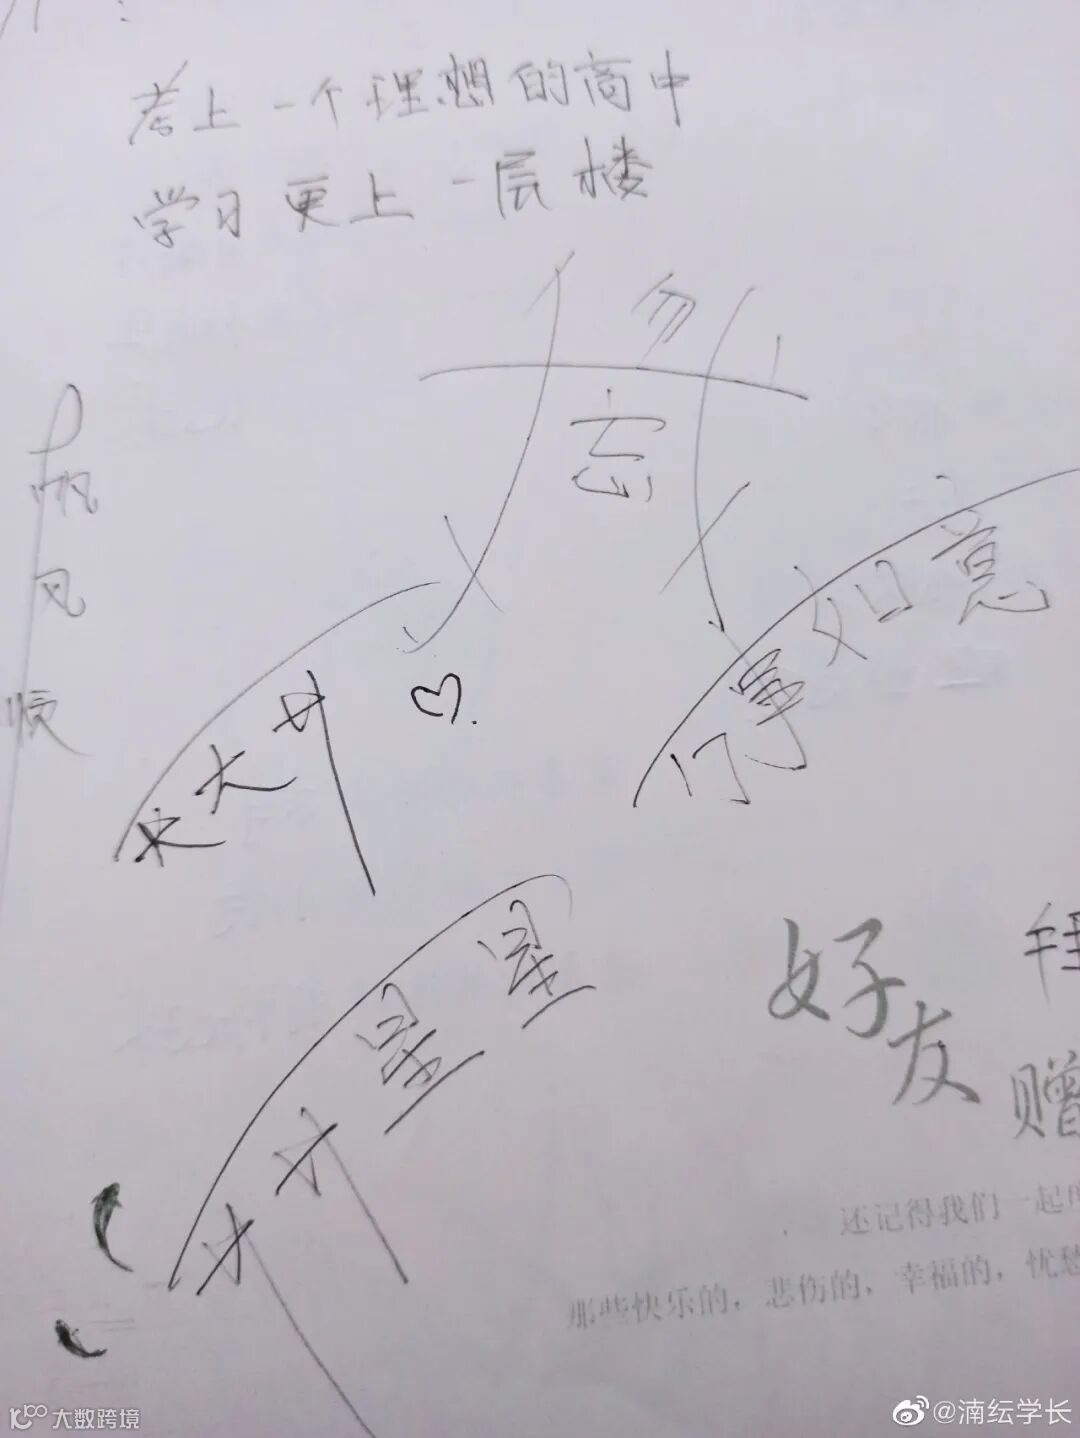 考上一个理想的高中
学习更上一层楼
勿
忘
我
一帆风顺
天天
行事如意
星星
好友
赠
还记得我们一起
那些快乐的，悲伤的，幸福的，忧愁
大数跨境
@湳纭学长